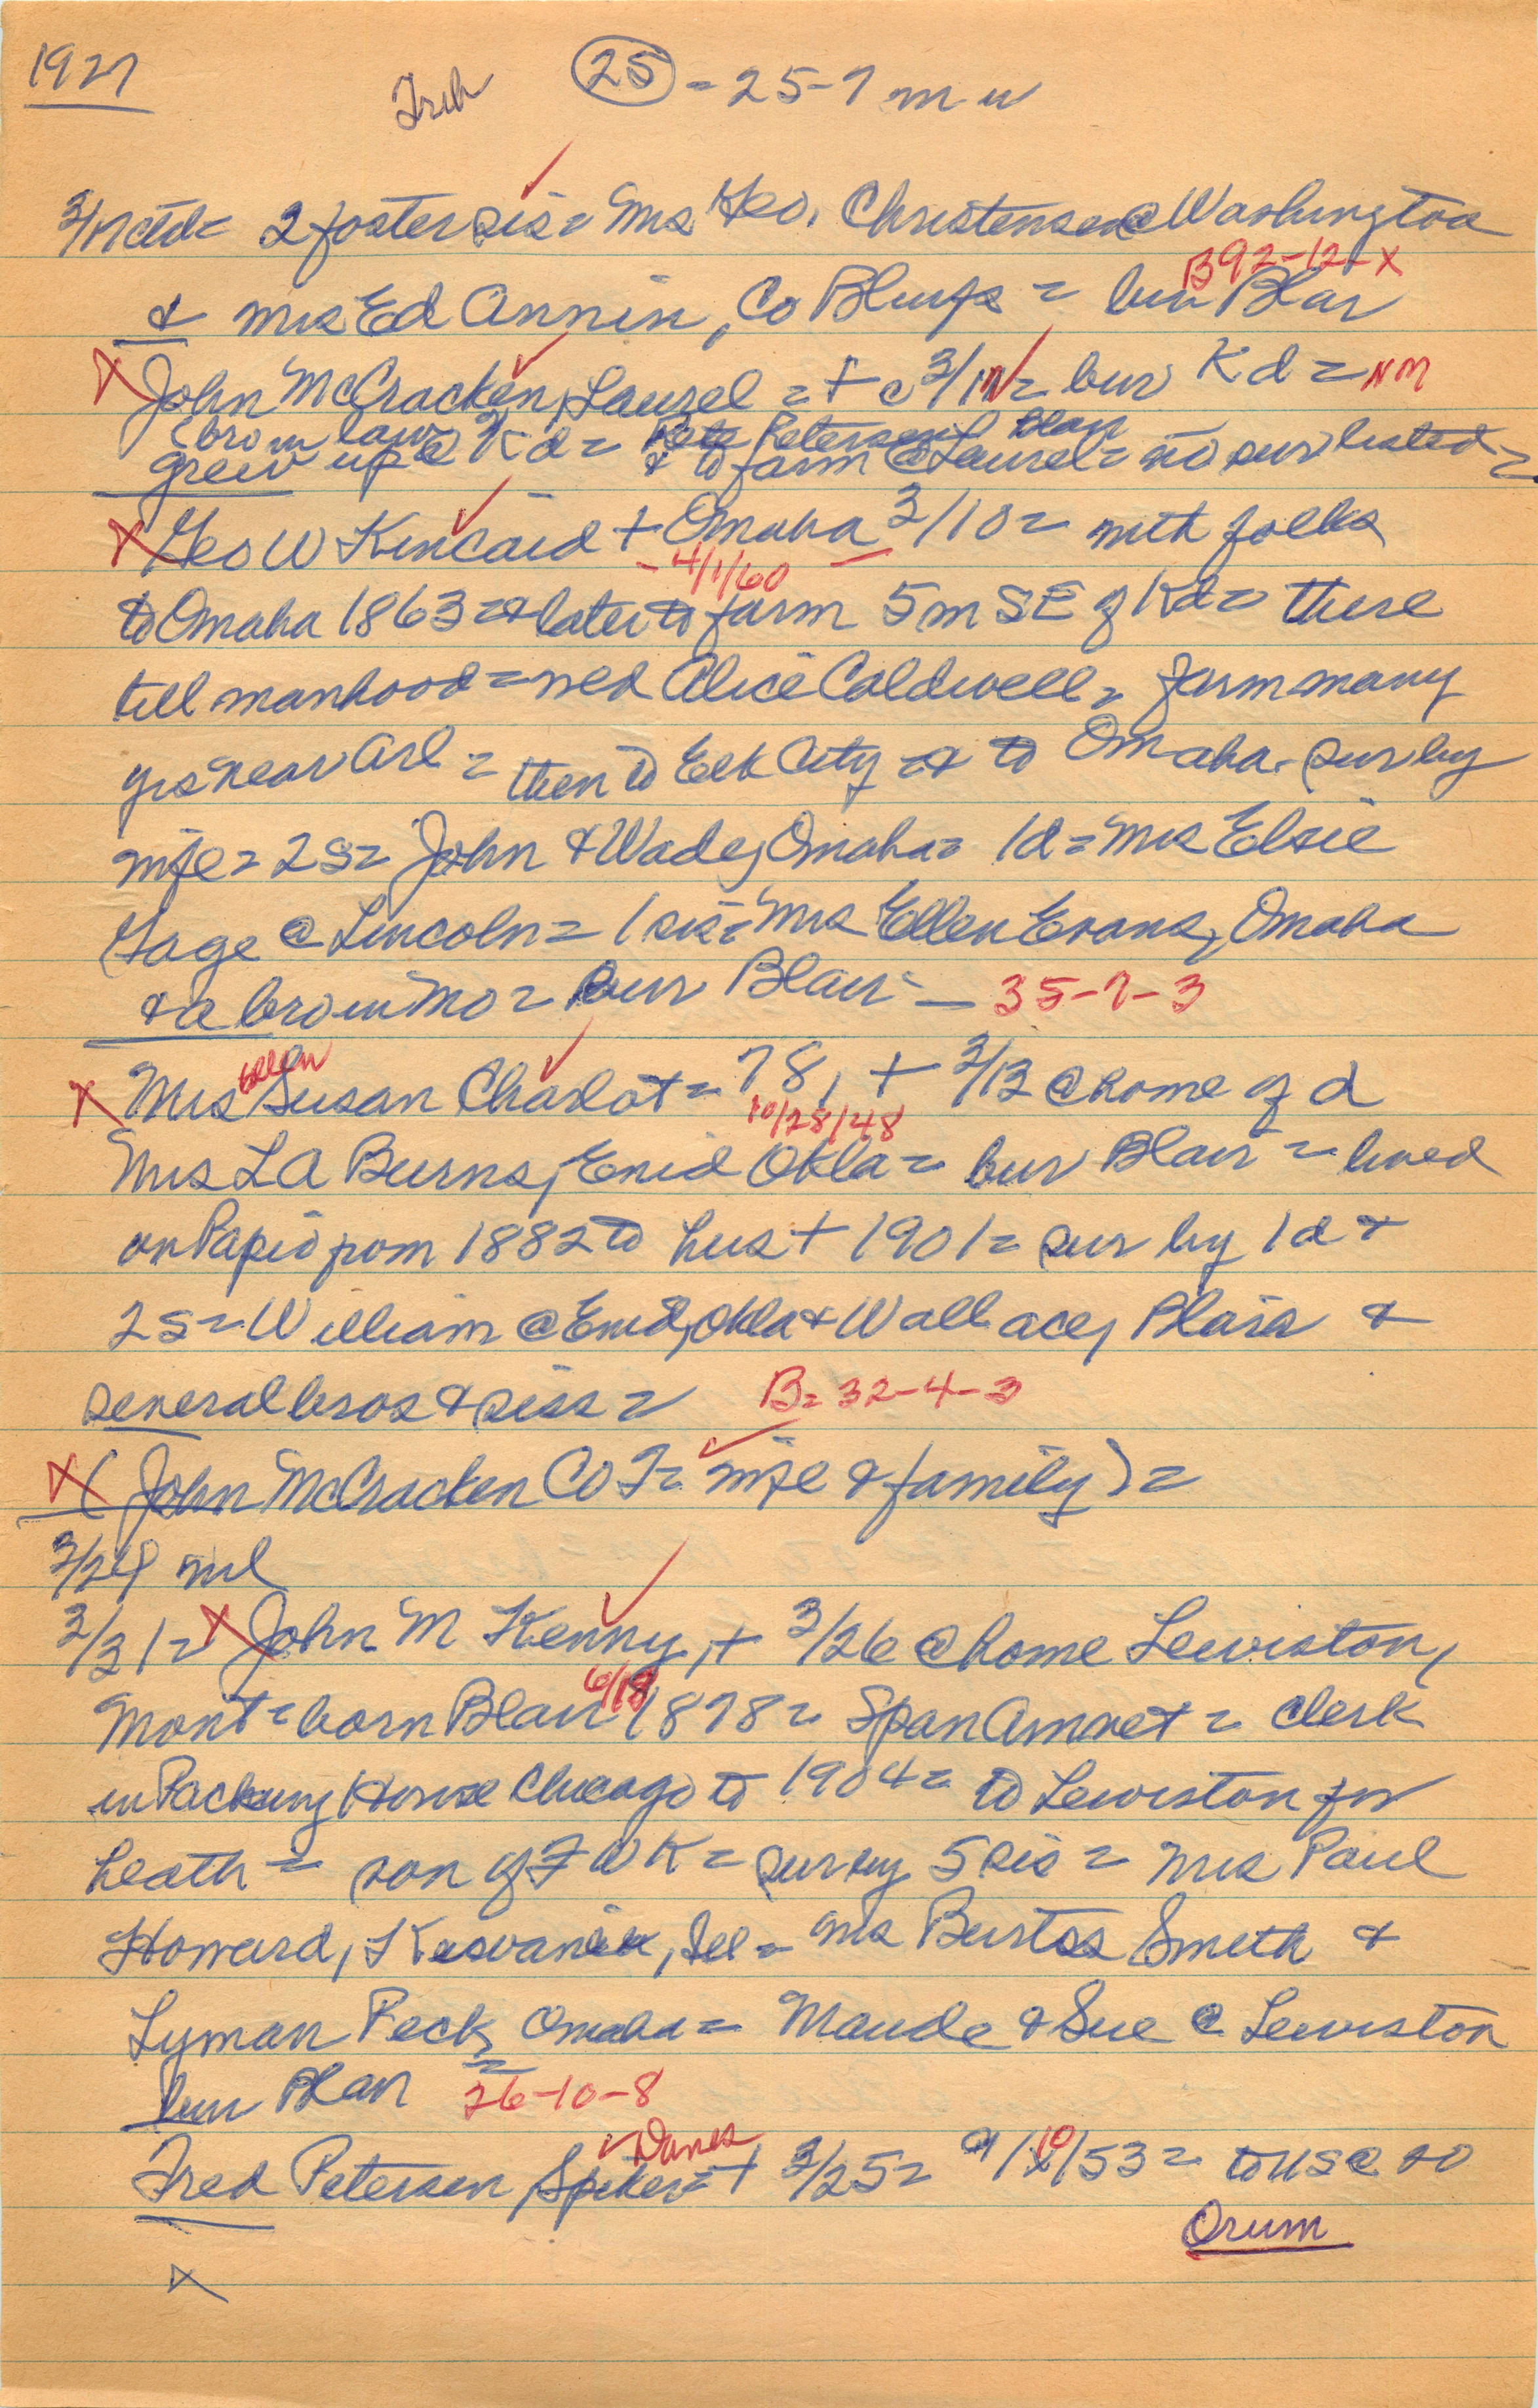 1927
Trib (25) = 25-7 m-w
3/17 ctd = 2 foster sis = Mrs Geo. Christensen @ Washington
B 92-12-X
& Mrs Ed Annin, Co Bluffs = bur Blair
X John McCracken, Laurel = + c 3/11 = bur Kd = NM
(bro in law Pete Petersen Blair
grew up @ Kd = & to farm @ Laurel = no sur listed =
X Geo W Kincaid + Omaha 3/10 = with folks
- 4/1/60 -
to Omaha 1863 = & later to farm 5 m SE of Kd = there
till manhood = wed Alice Caldwell = farm many
yrs near Arl = then to Elk City = & to Omaha - sur by
wife = 2 s = John & Wade, Omaha = 1 d = Mrs Elsie
Gage @ Lincoln = 1 sis = Mrs Ellen Evans, Omaha
& a bro in Mo = bur Blair - 35-7-3
X Mrs Ellen Susan Charlot = 78, + 3/13 @ home of d
10/28/48
Mrs L A Burns, Enid Okla = bur Blair = lived
on Papio from 1882 to hus + 1901 = sur by 1 d &
2 s = William @ Enid, Okla & Wallace, Blair &
several bros & siss = B = 32-4-3
X (John McCracken Co T = wife & family) =
3/24 nil
3/31 = X John M Kenny, + 3/26 @ home Lewiston,
6/18
Mont = born Blair 1878 = Span Am vet = clerk
in Packing House Chicago to 1904 = to Lewiston for
heath = son of F W K = sur by 5 sis = Mrs Paul
Howard, Kewanee, Ill = Mrs Smith &
Lyman Peck, Omaha = Maude & Sue @ Lewiston
bur Blair 26-10-8
Danes
Fred Petersen, Spiker = + 3/25 = 10/53 = to US @ 20
Orum
X